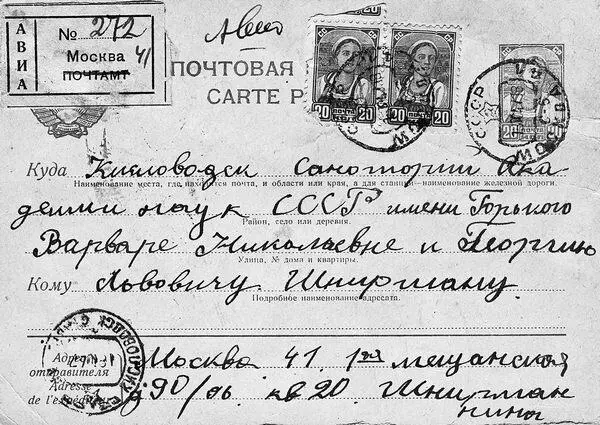 Авио
АВИА
№ 272
Москва 41
ПОЧТАМТ
ПОЧТОВАЯ
CARTE P
20 20
20 20
20
СССР
Куда Кисловодск Санатории Ака
Наименование места, где находится почта, и области или края, а для станции—наименование железной дороги.
демии наук СССР имени Горького
Район, село или деревня.
Варваре Николаевне и Георгию
Улица, № дома и квартиры.
Кому Львовичу Шнирману
Подробное наименование адресата.
КИСЛОВОДСК
Адрес отправителя
Adresse de l'expéditeur
Москва 41 1ая мещанская
д90/ кв 20 Шнирман
нины